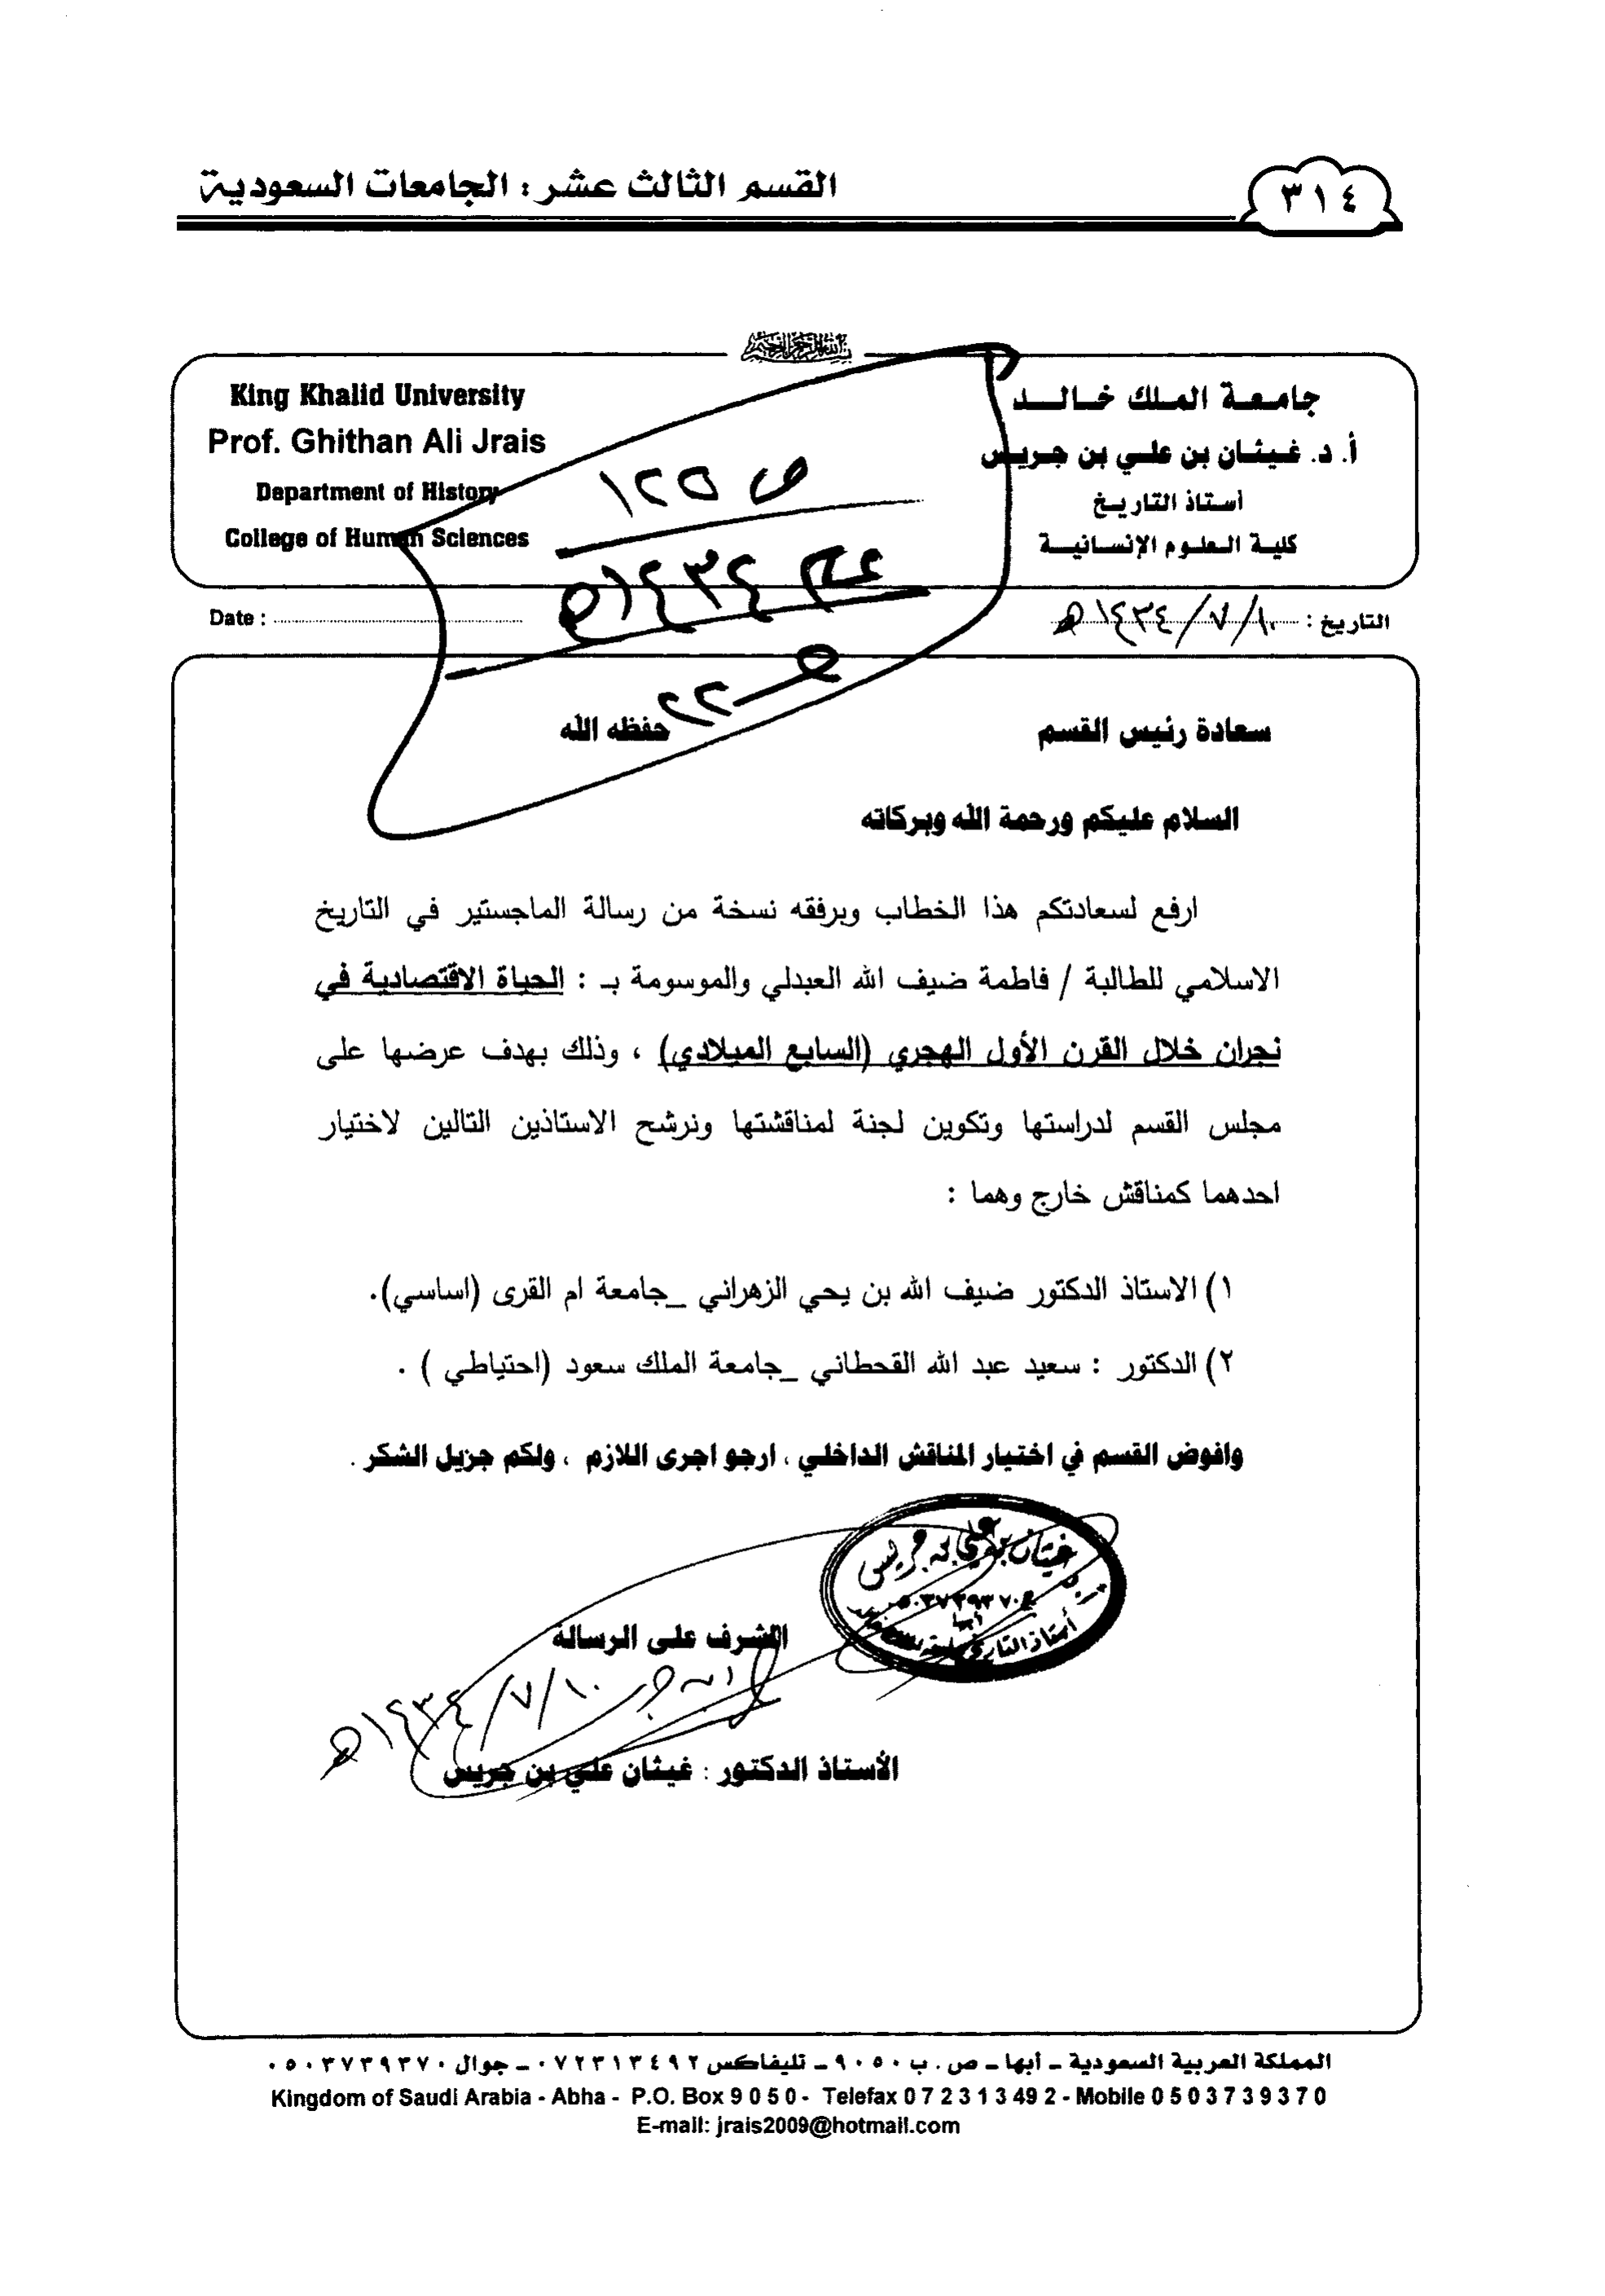 ٣١٤
القسم الثالث عشر : الجامعات السعودية
جامعة الملك خالد
أ. د. غيثان بن علي بن جريس
أستاذ التاريخ
كلية العلوم الإنسانية
King Khalid University
Prof. Ghithan Ali Jrais
Department of History
College of Human Sciences
ص ١٢٥
١٤٣٤هـ
التاريخ : ١٠/٧/١٤٣٤هـ
Date :
سعادة رئيس القسم حفظه الله
السلام عليكم ورحمة الله وبركاته
ارفع لسعادتكم هذا الخطاب وبرفقه نسخة من رسالة الماجستير في التاريخ
الاسلامي للطالبة / فاطمة ضيف الله العبدلي والموسومة بـ : الحياة الاقتصادية في
نجران خلال القرن الأول الهجري (السابع الميلادي) ، وذلك بهدف عرضها على
مجلس القسم لدراستها وتكوين لجنة لمناقشتها ونرشح الاستاذين التالين لاختيار
احدهما كمناقش خارج وهما :
١) الاستاذ الدكتور ضيف الله بن يحي الزهراني _جامعة ام القرى (اساسي).
٢) الدكتور : سعيد عبد الله القحطاني _جامعة الملك سعود (احتياطي ) .
وافوض القسم في اختيار المناقش الداخلي ، ارجو اجرى اللازم ، ولكم جزيل الشكر .
غيثان بن علي بن جريس
٠٥٠٣٧٣٩٣٧٠
أبها
المشرف على الرسالة
١٠/٧/١٤٣٤هـ
الأستاذ الدكتور : غيثان علي بن جريس
المملكة العربية السعودية - أبها - ص . ب ٩٠٥٠ - تليفاكس ٠٧٢٣١٣٤٩٢ - جوال ٠٥٠٣٧٣٩٣٧٠
Kingdom of Saudi Arabia - Abha - P.O. Box 9 0 5 0 - Telefax 0 7 2 3 1 3 49 2 - Mobile 0 5 0 3 7 3 9 3 7 0
E-mail: jrais2009@hotmail.com